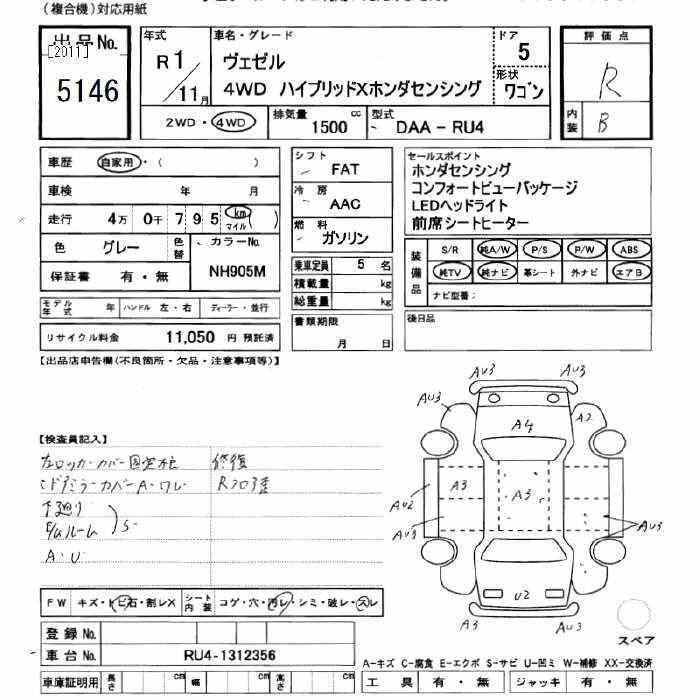 (複合機)対応用紙
出品No.
[2011]
5146
年式
R 1/11月
車名・グレード
ヴェゼル
4WD ハイブリッドXホンダセンシング
ドア
5
形状
ワゴン
評価点
R
内装
B
2WD・4WD
排気量 1500 cc
型式 DAA-RU4
車歴 自家用・( )
車検 年 月
走行 4万 0千 7 9 5 km マイル
色 グレー 色替
カラーNo. NH905M
保証書 有・無
モデル年式 年 ハンドル 左・右 ディーラー・並行
リサイクル料金 11,050 円 預託済
シフト
FAT
冷房
AAC
燃料
ガソリン
乗車定員 5 名
積載量 kg
総重量 kg
書類期限
月 日
セールスポイント
ホンダセンシング
コンフォートビューパッケージ
LEDヘッドライト
前席シートヒーター
装備品
S/R 純A/W P/S P/W ABS
純TV 純ナビ 革シート 外ナビ エアB
ナビ型番:
後日品
【出品店申告欄(不良箇所・欠品・注意事項等)】
【検査員記入】
左ロッカーカバー固定 修復
ドアミラーカバーA・ワレ
下廻り
E/ルーム S
A・U
AU3 AU3
AU3 A4 A2
A3 A3
AU2
AU3 AU3
U2
A3 AU3
スペア
FW キズ・トビ石・割レX
シート内装 コゲ・穴・汚レ・シミ・破レ・スレ
登録No.
車台No. RU4-1312356
車庫証明用 長さ cm 幅 cm 高さ cm
A-キズ C-腐食 E-エクボ S-サビ U-凹ミ W-補修 XX-交換済
工具 有・無 ジャッキ 有・無